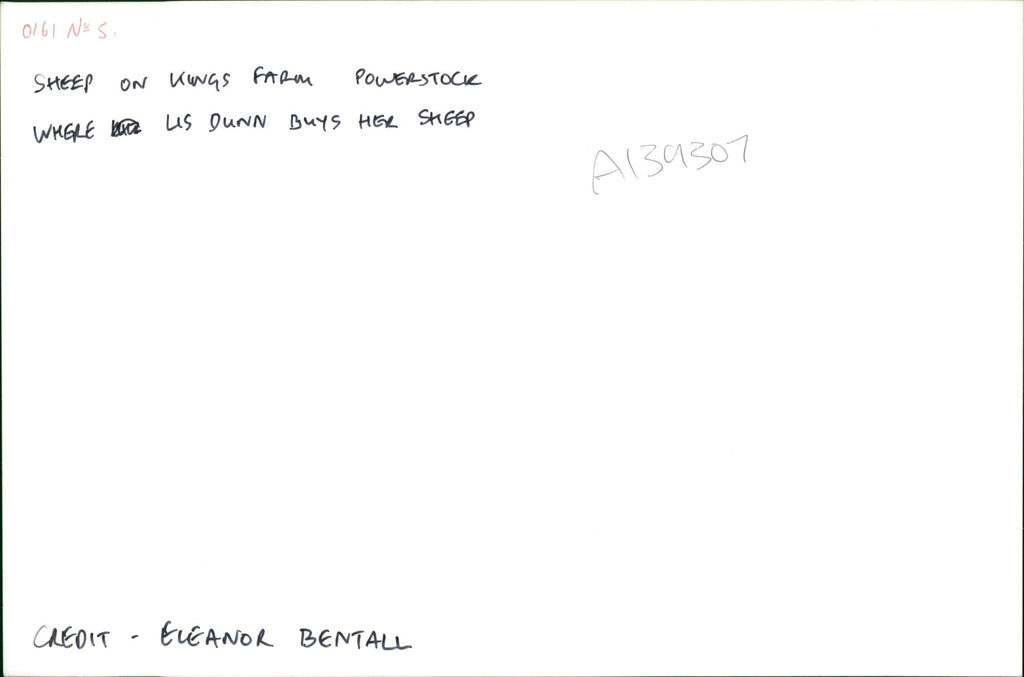 0161 No 5.
SHEEP ON KINGS FARM POWERSTOCK
WHERE LIS DUNN BUYS HER SHEEP
A139307
CREDIT - ELEANOR BENTALL